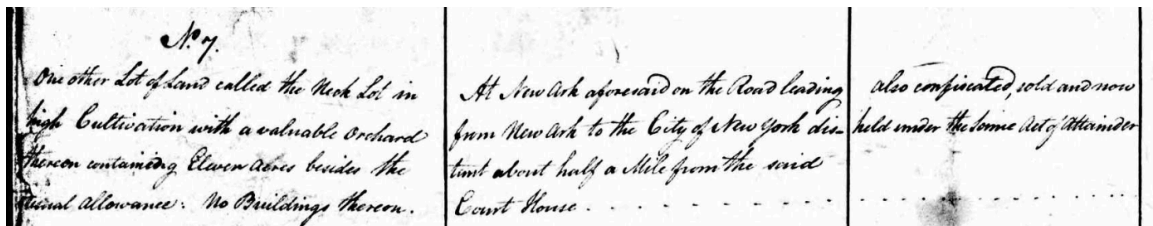 No. 7.
One other Lot of Land called the Neck Lot in
high Cultivation with a valuable Orchard
thereon containing Eleven Acres besides the
usual Allowance. No Buildings thereon.
At New Ark aforesaid on the Road leading
from New Ark to the City of New York dis-
tant about half a Mile from the said
Court House . . . . . . . . . . .
also confiscated, sold and now
held under the same Act of Attainder
. . . . . . . . . . . . . .